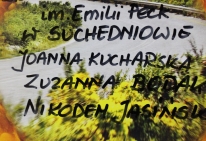 im. Emilii PECK
W SUCHEDNIOWIE
JOANNA KUCHARSKA
ZUZANNA
NIKODEM JASIŃSK